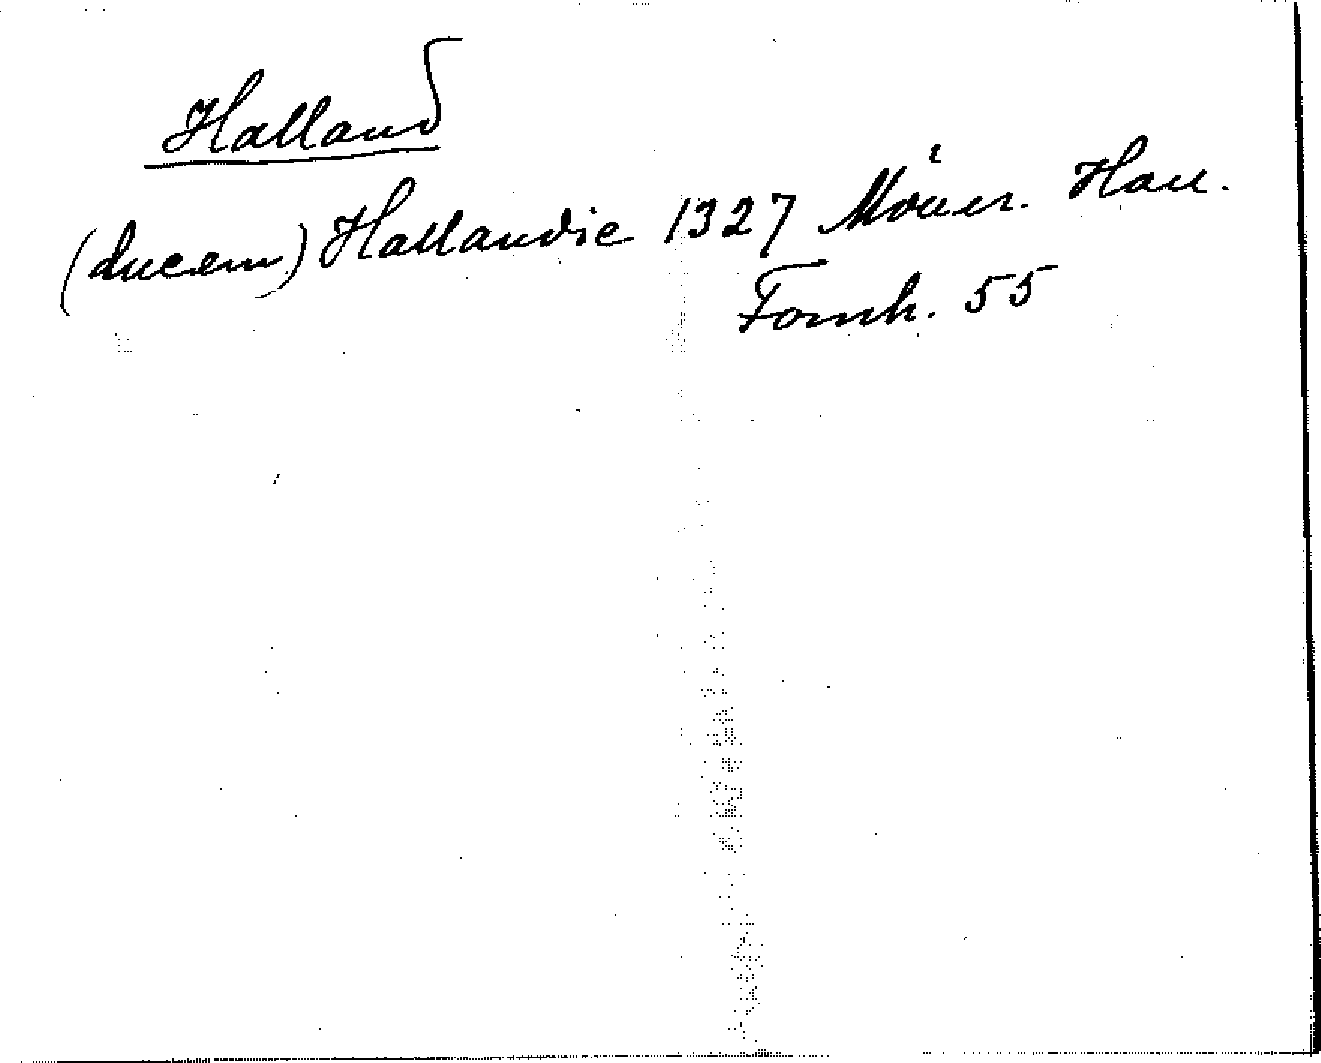 Halland
(ducem) Hallandie 1327 Hall.
Fornh. 55